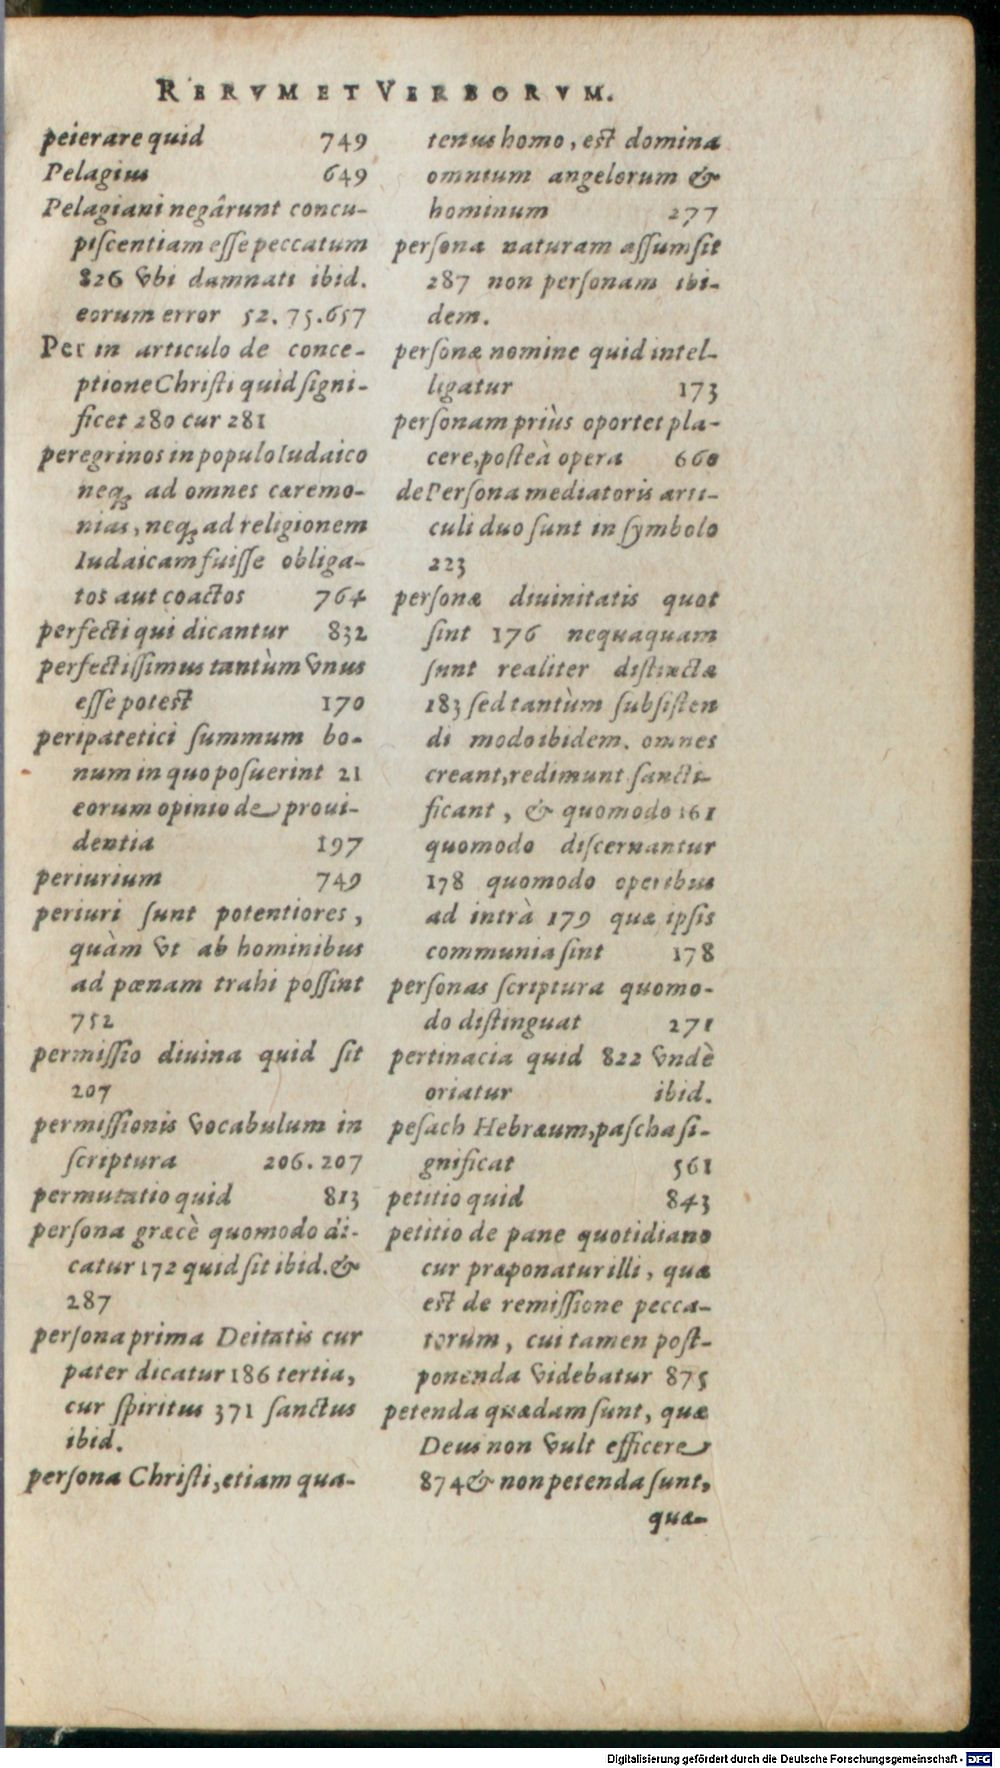 RERVM ET VERBORVM.
peierare quid 749
Pelagius 649
Pelagiani negârunt concu-
piscentiam esse peccatum
826 vbi damnati ibid.
eorum error 52. 75. 657
Per in articulo de conce-
ptione Christi quid signi-
ficet 280 cur 281
peregrinos in populo Iudaico
neq; ad omnes cæremo-
nias, neq; ad religionem
Iudaicam fuisse obliga-
tos aut coactos 764
perfecti qui dicantur 832
perfectissimus tantùm vnus
esse potest 170
peripatetici summum bo-
num in quo posuerint 21
eorum opinio de proui-
dentia 197
periurium 749
periuri sunt potentiores,
quàm vt ab hominibus
ad pœnam trahi possint
752
permissio diuina quid sit
207
permissionis vocabulum in
scriptura 206. 207
permutatio quid 813
persona græcè quomodo di-
catur 172 quid sit ibid. &
287
persona prima Deitatis cur
pater dicatur 186 tertia,
cur spiritus 371 sanctus
ibid.
persona Christi, etiam qua-
tenus homo, est domina
omnium angelorum &
hominum 277
persona naturam assumsit
287 non personam ibi-
dem.
personæ nomine quid intel-
ligatur 173
personam priùs oportet pla-
cere, posteà opera 660
de Persona mediatoris arti-
culi duo sunt in symbolo
223
personæ diuinitatis quot
sint 176 nequaquam
sunt realiter distinctæ
183 sed tantùm subsisten
di modo ibidem. omnes
creant, redimunt sancti-
ficant, & quomodo 161
quomodo discernantur
178 quomodo operibus
ad intrà 179 quæ ipsis
communia sint 178
personas scriptura quomo-
do distinguat 271
pertinacia quid 822 vndè
oriatur ibid.
pesach Hebræum, pascha si-
gnificat 561
petitio quid 843
petitio de pane quotidiano
cur præponatur illi, quæ
est de remissione pecca-
torum, cui tamen post-
ponenda videbatur 875
petenda quædam sunt, quæ
Deus non vult efficere
874 & non petenda sunt,
quæ-
Digitalisierung gefördert durch die Deutsche Forschungsgemeinschaft - DFG